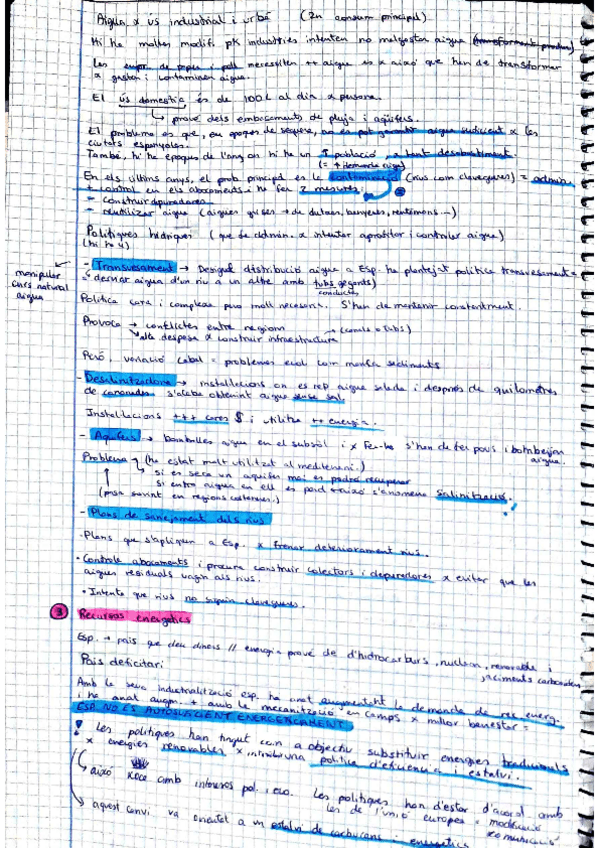 Aigua x ús industrial i urbà (2n consum principal)
Hi ha moltes modif. pk industries intenten no malgastar aigua
Les empr. de paper i pell necessiten ++ aigua és x això que han de transformar
x gastar i contaminen aigua.
El ús domestic és de 100L al dia x persona.
↳ prové dels embassaments de pluja i aqüífers.
El problema és que, en èpoques de sequera, no es pot garantir aigua suficient x les
ciutats espanyoles.
També, hi ha èpoques de l'any on hi ha un ↑ població, x tant desabastiment.
(= ↑ demanda aigua)
En els últims anys, el prob principal és la contaminació (rius com clavegueres) = admin.
+ control en els abocaments i ha fet 2 mesures
- construir depuradores
- reutilitzar aigua (aigües grises → de dutxes, banyeres, rentamans...)
Polítiques hídriques (que fa admin. x intentar aprofitar i controlar aigua)
(hi ha 4)
- Transvasament → Desigual distribució aigua a Esp. ha plantejat política transvasaments
manipular
curs natural
aigua
derivar aigua d'un riu a un altre amb tubs gegants)
conductes
Política cara i complexa però molt necessària. S'han de mantenir constantment.
Provoca → conflictes entre regions
→ alta despesa x construir infraestructura (canals o tubs)
Però, variació cabal = problemes ecol com manca sediments
- Desalinitzadora → instal·lacions on es rep aigua salada i després de quilometres
de canonades s'acaba obtenint aigua sense sal.
Instal·lacions +++ cares $ i utilitza ++ energia.
- Aqüífers → bombolles aigua en el subsòl i x fer-ho s'han de fer pous i bombejar
aigua.
Problema → (ha estat molt utilitzat al mediterrani.)
si es seca un aqüífer mai es podrà recuperar
si entra aigua en ell es perd i això s'anomena salinització.
(passa sovint en regions costeres.)
- Plans de sanejament dels rius
· Plans que s'apliquen a Esp. x frenar deteriorament rius.
· Controla abocaments i procura construir col·lectors i depuradores x evitar que les
aigües residuals vagin als rius.
· Intenta que rius no siguin clavegueres.
3 Recursos energètics
Esp. → país que deu diners // energia prové de d'hidrocarburs, nuclear, renovable i
jaciments carbonden.
País deficitari
Amb la seva industrialització esp. ha anat augmentant la demanda de rec energ.
i ha anat augm. + amb la mecanització en camps x millor benestar =
ESP. NO ÉS AUTOSUFICIENT ENERGÈTICAMENT
! Les polítiques han tingut com a objectiu substituir energies tradicionals
x energies renovables x intro una política d'eficiència i estalvi.
↳ això xoca amb interessos pol. i eco. Les polítiques han d'estar d'acord amb
les de l'unió europea =
↳ aquest canvi va orientat a un estalvi de